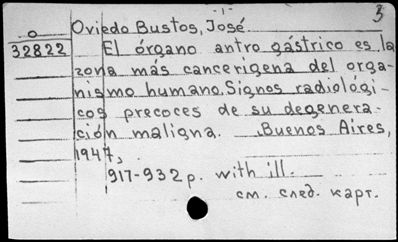 -1-
3
o Oviedo Bustos, José
32822 El órgano antro gástrico es la
zona más cancerigena del orga-
nismo humano. Signos radiológi-
cos precoces de su degenera-
ción maligna. Buenos Aires,
1947,
917-932 p. with ill.
см. след. карт.